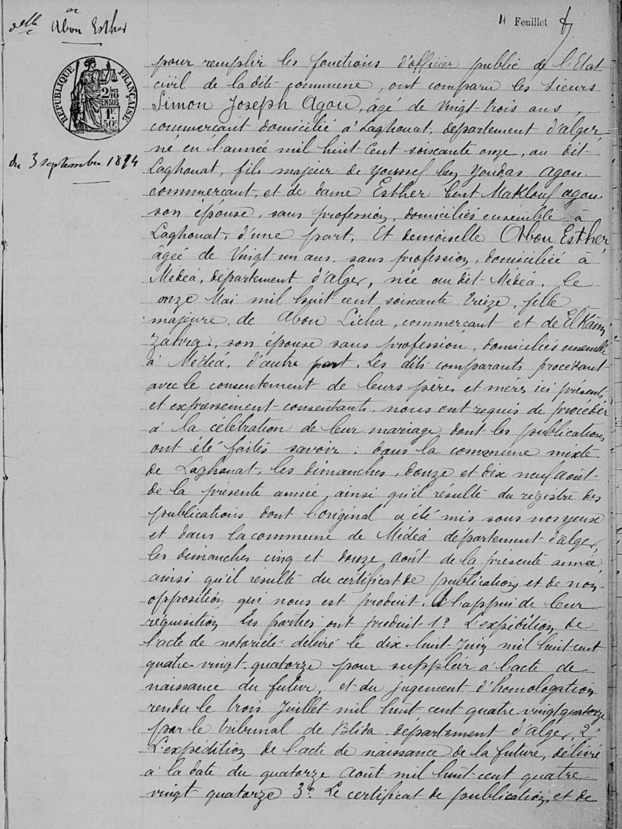 11 Feuillet
delle Abou Esther
RÉPUBLIQUE FRANÇAISE
du 3 septembre 1894
pour remplir les fonctions d'officier public de l'Etat
civil de la dite commune, ont comparu les sieurs
Simon Joseph Agou, âgé de Vingt trois ans
commerçant domicilié à Laghouat, département d'alger,
né en l'année mil huit cent soixante onze, au dit
Laghouat, fils majeur de youssef ben youdas agou
commerçant, et de dame Esther bent Maklouf agou
son épouse, sans profession, domiciliés ensemble à
Laghouat, d'une part, Et demoiselle Abou Esther
âgée de Vingt un ans, sans profession, domiciliée à
Médéa, département d'alger, née au dit Médéa, le
onze Mai mil huit cent soixante treize, fille
majeure de Abou Licha, commerçant et de El Kaïm
, son épouse sans profession, domiciliés ensemble
à Médéa, d'autre part. Les dits comparants procédant
avec le consentement de leurs pères et mères ici présents
et expressément consentants, nous ont requis de procéder
à la célébration de leur mariage dont les publications
ont été faites savoir : dans la commune mixte
de Laghouat, les dimanches, douze et dix neuf août
de la présente année, ainsi qu'il résulte du registre des
publications dont l'original a été mis sous nos yeux
et dans la commune de Médéa département d'alger,
les dimanches cinq et douze août de la présente année
ainsi qu'il résulte du certificat de publications et de non
opposition qui nous est produit. A l'appui de leur
réquisition les parties ont produit 1° L'expédition de
l'acte de notoriété délivré le dix-huit Juin mil huit cent
quatre-vingt-quatorze pour suppléer à l'acte de
naissance du futur, et du jugement d'homologation
rendu le trois Juillet mil huit cent quatre vingt quatorze
par le tribunal de Blida département d'alger, 2°
L'expédition de l'acte de naissance de la future, délivré
à la date du quatorze août mil huit cent quatre
vingt quatorze 3° Le certificat de publications et de